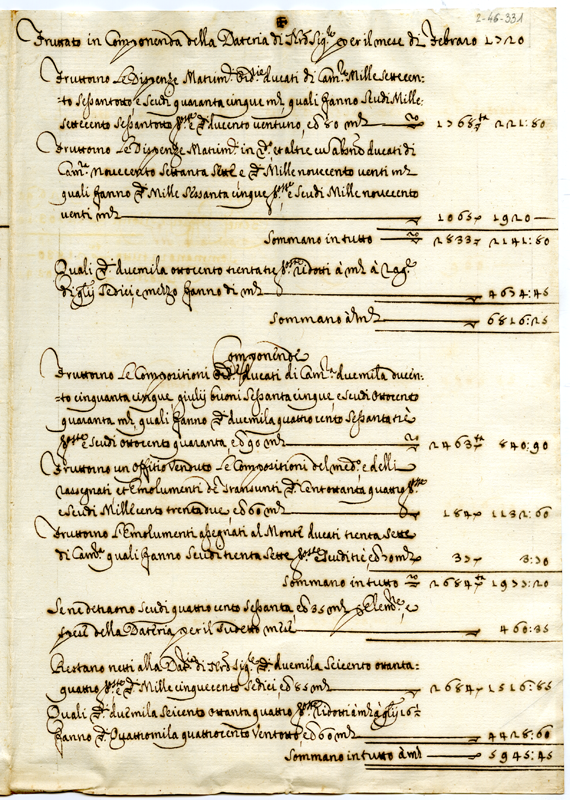 2-46-331
Fruttato in Componenda della Dateria di Nro Sigre per il mese di Febraro 1720
Fruttorno Le Dispenze Matrim. ducati di Camra Mille settecen:
:to sessantotto, e scudi quaranta cinque mta quali fanno scudi Mille
settecento sessantotto pste, e Dducento ventuno, ed 80 mta 1768 221:80
Fruttorno Le Dispenze Matrim. in et altre ducati di
Camra Novecento settanta sette e Mille novecento venti mta
quali fanno Mille sessanta cinque pste, e scudi Mille novecento
venti mta 1065 1920
Sommano in tutto 2833 2141:80
Quali duemila ottocento trentatre pste ridotti à mta à rag.e
di glij sedici, e mezzo fanno di mta 4674:45
Sommano à mta 6816:25
Componende
Fruttorno Le Compositioni ducati di Camra duemila ducen:
:to cinquanta cinque, giulij buoni sessanta cinque, e scudi ottocento
quaranta mta quali fanno duemila quattro cento sessanta tre
pste e scudi ottocento quaranta ed 90 mta 2463 840:90
Fruttorno un offitio venduto Le Compositioni del med.o e delli
rassegnati et Emolumenti de Transunti Cent'ottanta quattro pste
e scudi Mille cento trenta due, ed 60 mta 184 1132:60
Fruttorno L'Emolumenti assegnati al Monte ducati trenta sette
di Camra quali fanno scudi trenta sette pste e scudi tre, ed 70 mta 37 3:70
Sommano in tutto 2684 1977:20
Se ne detraono scudi quattro cento sessanta ed 35 mta p Elem.ne, e
spese della Dateria per il sudetto mese 460:35
Restano netti alla Datria di Nro Sigre duemila seicento ottanta:
quattro pste, e Mille cinquecento sedici ed 85 mta 2684 1516:85
Quali duemila seicento ottanta quattro pste ridotti à mta à glij 16½
fanno Quattromila quattrocento ventotto, ed 60 mta 4428:60
Sommano in tutto à mta 5945:45